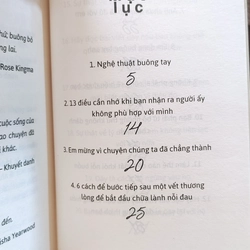 hứ: buông bỏ
ng lai.
Rose Kingma
cuộc sống của
ao chuyện đó
c khác.
– Khuyết danh
đến.
isha Yearwood
LỤC
1. Nghệ thuật buông tay
5
2.13 điều cần nhớ khi bạn nhận ra người ấy
không phù hợp với mình
14
3.Em mừng vì chuyện chúng ta đã chẳng thành
20
4. 6 cách để bước tiếp sau một vết thương
lòng để bắt đầu chữa lành nỗi đau
25